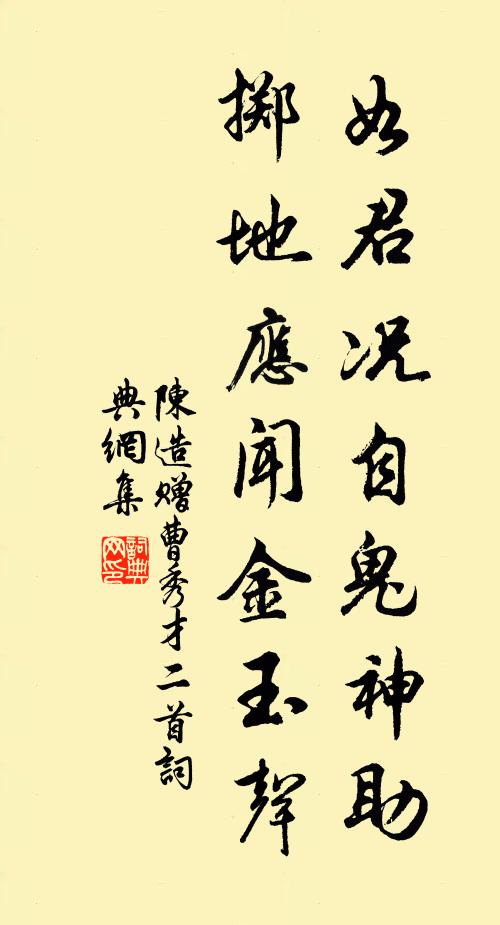 如君况自鬼神助
擲地應闻金玉聲
陳造贈曹秀才二首詞
典網集
詞典
网印